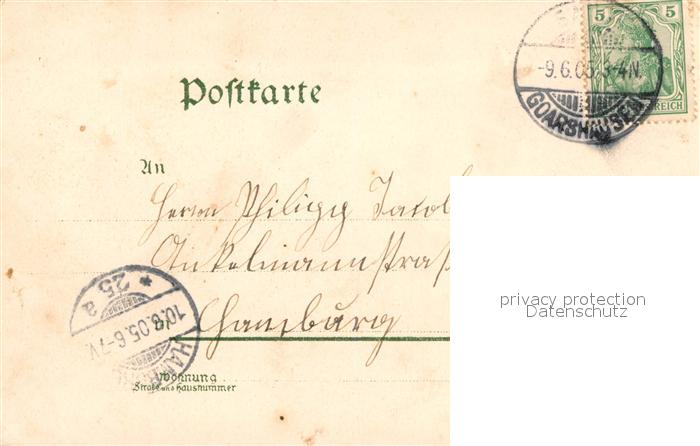 5 5
-9.6.05. 3-4N.
GOARSHAUSEN
REICH
Postkarte
An
Herrn Philipp Jacob
Ankelmannstraß
Hamburg
* 25 a
10.6.05. 6-7V.
HAMBURG
Wohnung
Straße und Hausnummer
privacy protection
Datenschutz